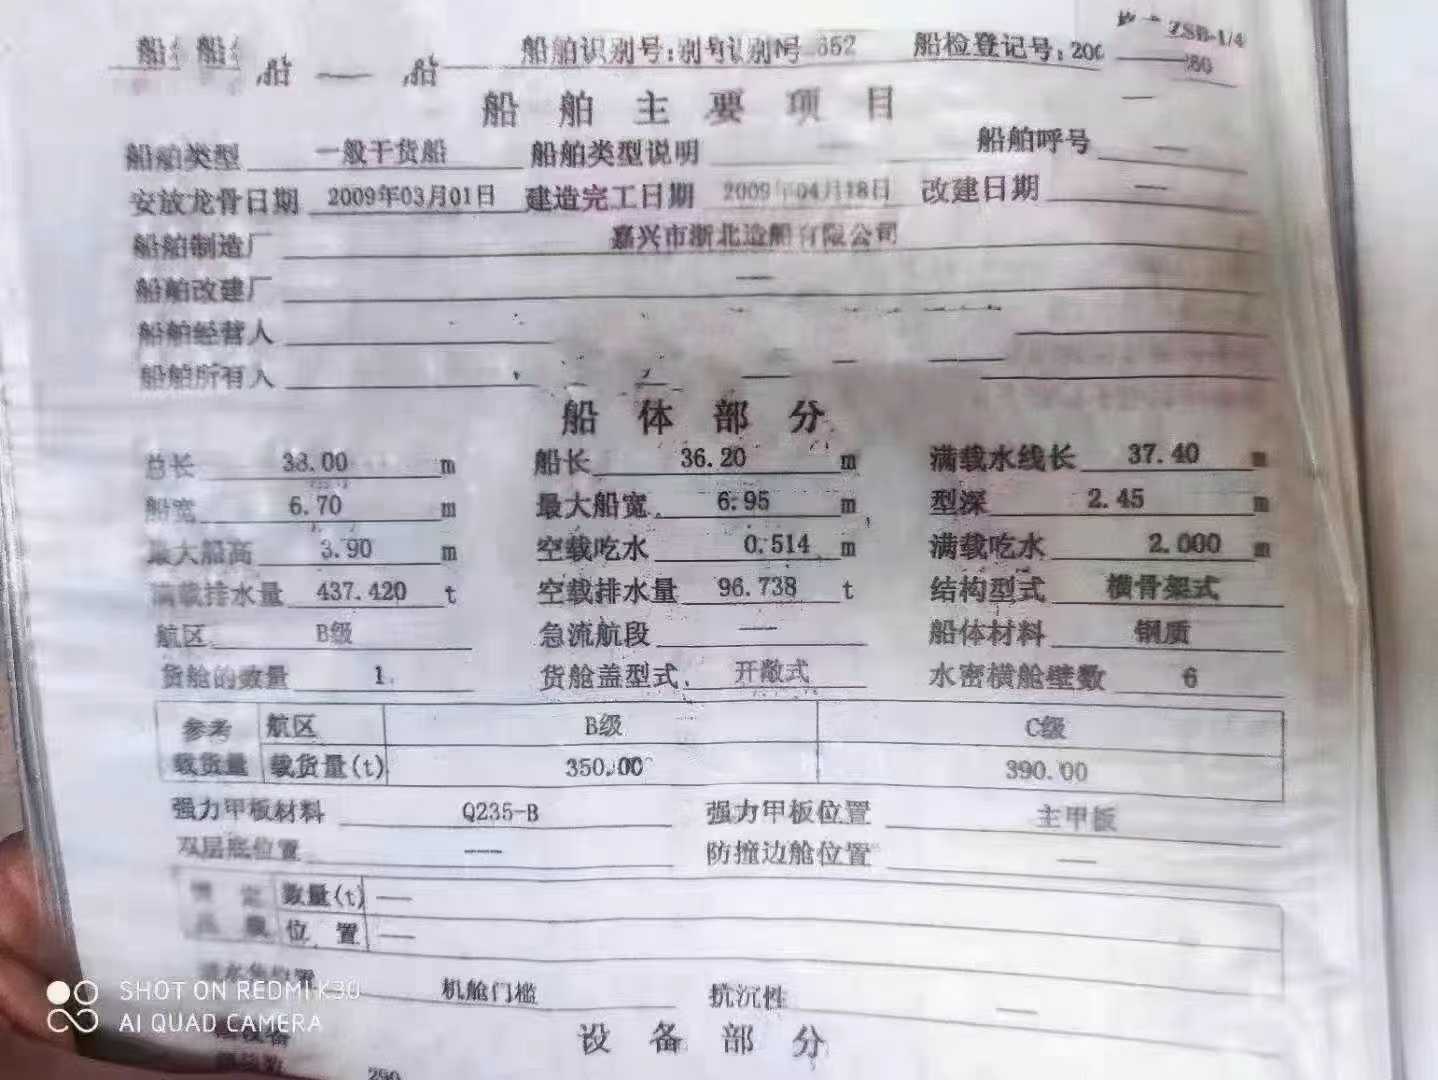 ZSB-1/4
船舶识别号: 352 船检登记号: 200 80
船舶主要项目
船舶类型 一般干货船 船舶类型说明 — 船舶呼号 —
安放龙骨日期 2009年03月01日 建造完工日期 2009年04月18日 改建日期 —
船舶制造厂 嘉兴市浙北造船有限公司
船舶改建厂 —
船舶经营人
船舶所有人
船体部分
总长 38.00 m 船长 36.20 m 满载水线长 37.40 m
船宽 6.70 m 最大船宽 6.95 m 型深 2.45 m
最大船高 3.90 m 空载吃水 0.514 m 满载吃水 2.000 m
满载排水量 437.420 t 空载排水量 96.738 t 结构型式 横骨架式
航区 B级 急流航段 — 船体材料 钢质
货舱的数量 1 货舱盖型式 开敞式 水密横舱壁数 6
参考载货量 航区 B级 C级
载货量(t) 350.00 390.00
强力甲板材料 Q235-B 强力甲板位置 主甲板
双层底位置 — 防撞边舱位置 —
数量(t) —
位 置 —
机舱门槛 抗沉性 —
设备部分
290
SHOT ON REDMI K30
AI QUAD CAMERA